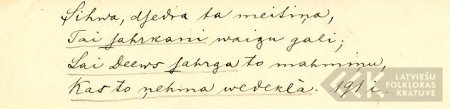 Sihwa, dsedra ta meitiņa,
Tai sahrkani waigu gali;
Lai Deews sahrga to mahmiņu,
Kas to ņehma wedeklâ. 191 i.
LATVIEŠU
FOLKLORAS
KRĀTUVE